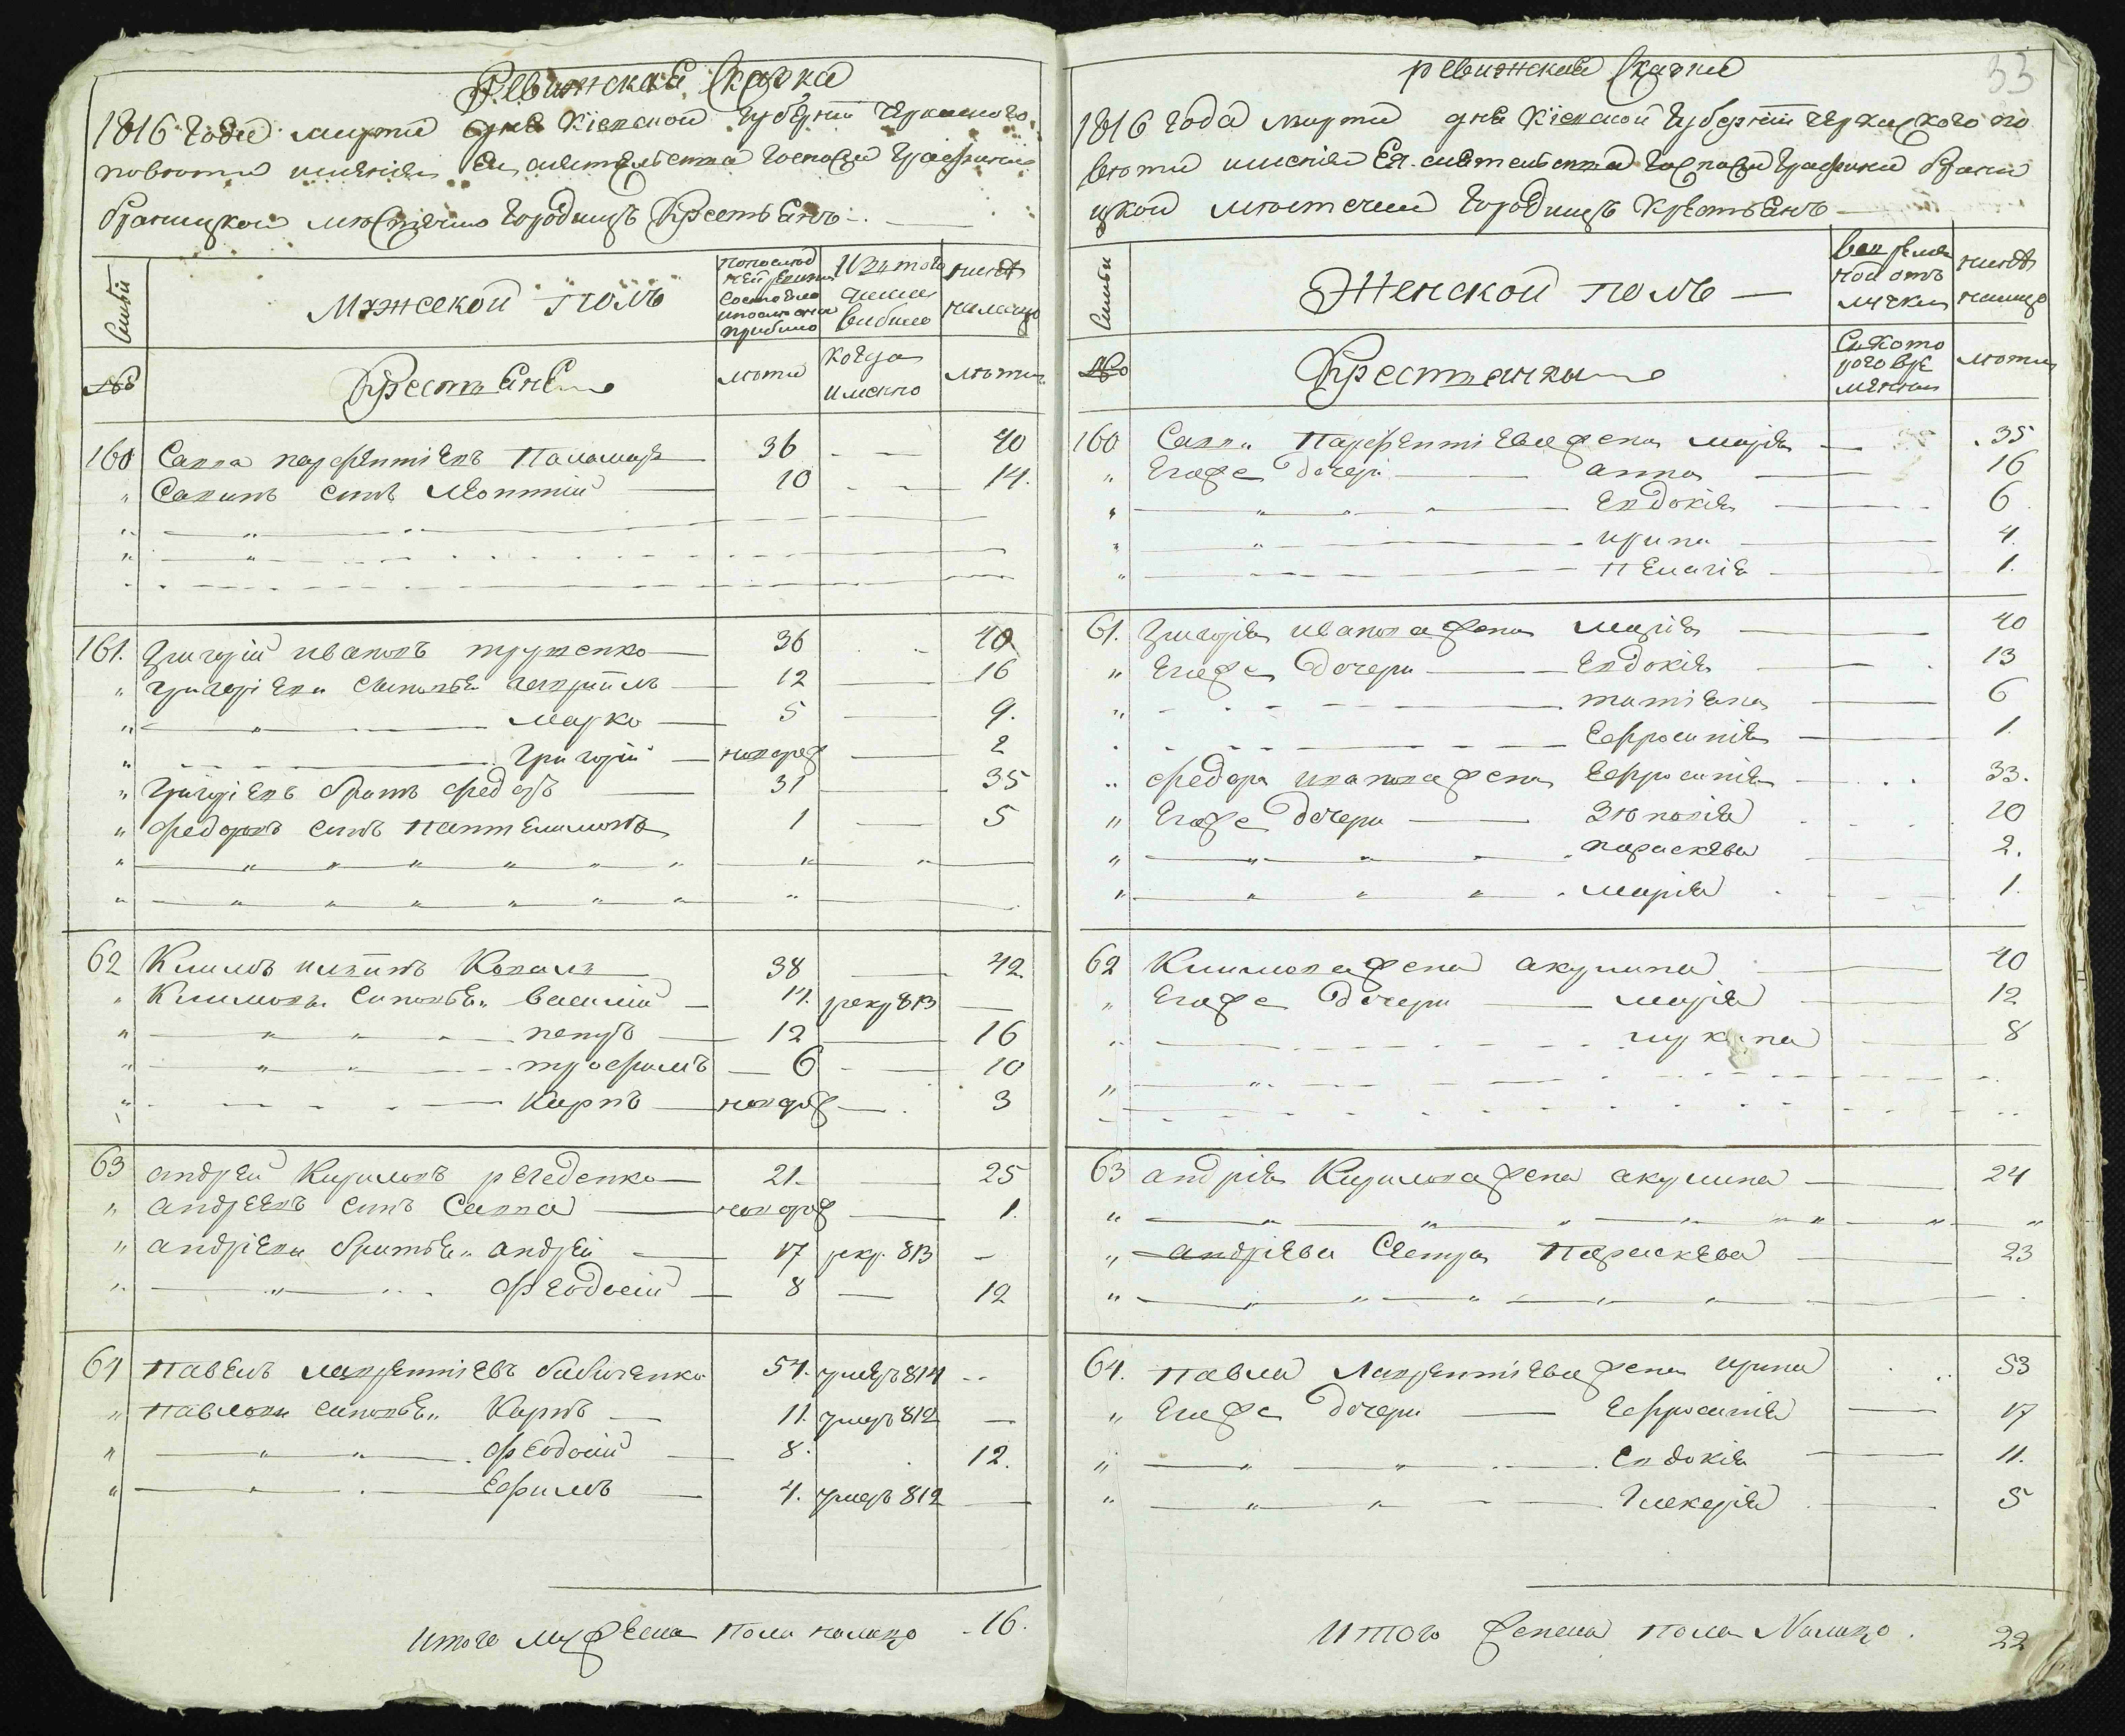 Ревижская Скаска
1816 Года марта дня Кіевской Губерніи Черкаского
повюта имения Ея сиятельства Госпожи Графини
браницкой мюстечка Городищъ Крестьянъ
Симьи
Мужеской полъ
по послюд
ней ревизи
состояло
и после оной
прибило
Изъ того
числа
вибило
нинѣ
на лицо
№
Крестьяне
люта
когда
имянно
люта
160 Савва парфентіевъ Паламарь 36 40
" Саввинъ синъ Леонтій 10 14.
161. Григорій ивановъ 36 40
" Григоріеви синовья Гавріилъ 12 16
" " Марко 5 9.
" Григорій новорож 2
" Григоріевъ братъ федоръ 31 35
" федоровъ синъ Пантелимонъ 1 5
62 Климъ Коваль 38 42
" Климови синовья Василій 14 рекр 813
" " 12 16
" " трофимъ 6 10
" Карпъ новорож 3
63 андрей Кириловъ 21 25
" андреевъ синъ Савва новорож 1.
" андріеви братья андрей 17 рекр. 813 -
" " Феодосій 8 12
64 Павелъ Лаврентіевъ бабиченко 54. умеръ 814
" Павлови синовья Карпъ 11. умеръ 812
" " феодосій 8. 12.
" " Ефимъ 4. умеръ 812
Итого мужеска пола налицо 16.
33
ревижская Скаска
1816 года марта дня Кіевской Губерніи черкаского по
вюта имения Ея сиятельства Госпожи Графини брани
цкой мюстечка Городищъ Крестьянъ
Симьи
Женской полъ
во времен
ной от
лучки
нинѣ
налицо
№
Крестянки
Съ кото
рого вре
мянни
люта
160 Саввы Парфентіева жена Марія 35
" Егоже дочери анна 16
" " Евдокія 6
" " ирина 4.
" Пелагія 1.
61. Григорія иванова жена Марія 40
" Егоже дочери Евдокія 13
" татіяна 6
Ефросинія 1.
" федора иванова жена Ефросинія 33.
" Егоже дочери 20
" " параскева 2.
" " марія 1.
62 Климова жена акулина 40
" Егоже дочери марія 12
" 8
63 андрія Кирилова жена акулина 24
" андріева Сестра Параскева 23
64. Павла Лаврентіева жена ирина 53
" Егоже дочери Ефросинія 17
" " Евдокія 11.
" " Гликерія 5
Итого женска пола Налицо. 22